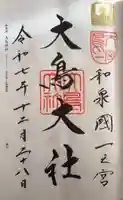 和泉國一之宮
大鳥大社
令和七年十二月二十八日